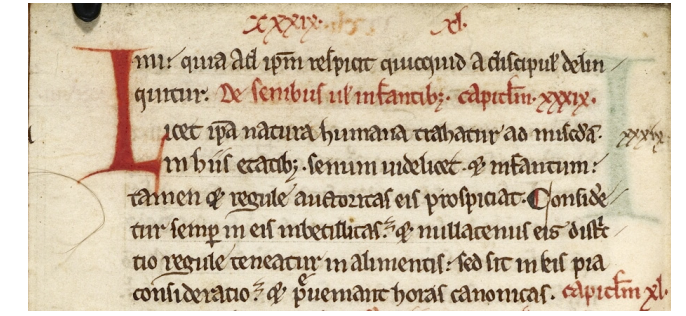 xxxix. xl.
nni: quia ad ip̄m respicit quicquid a discipul' delin
quitur. De senibus ul' infantibꝫ. capitl̄m. xxxix.
Licet ip̄a natura humana trahatur ad mis̄cdā. xxxix
in hiis etatibꝫ. senum uidelicet. & infantum:
tamen & regule auctoritas eis prospiciat. Conside
tur semꝑ in eis inbecillitas: & nullatenus eis dist̄c
tio regule teneatur in alimentis: sed sit in eis pia
consideratio: & p̄ueniant horas canonicas. capitl̄m xl.